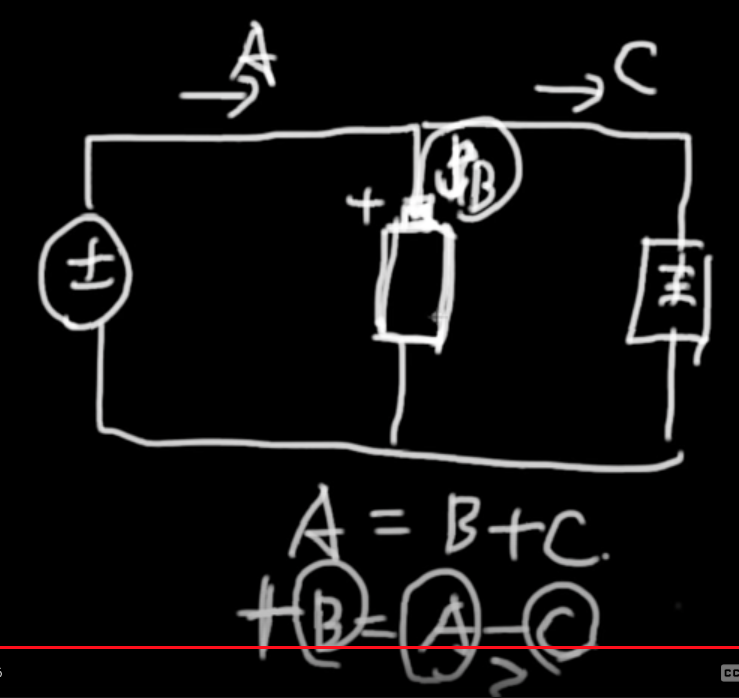 A
→ C
→
B
+
±
A = B + C.
+B = A - C
>